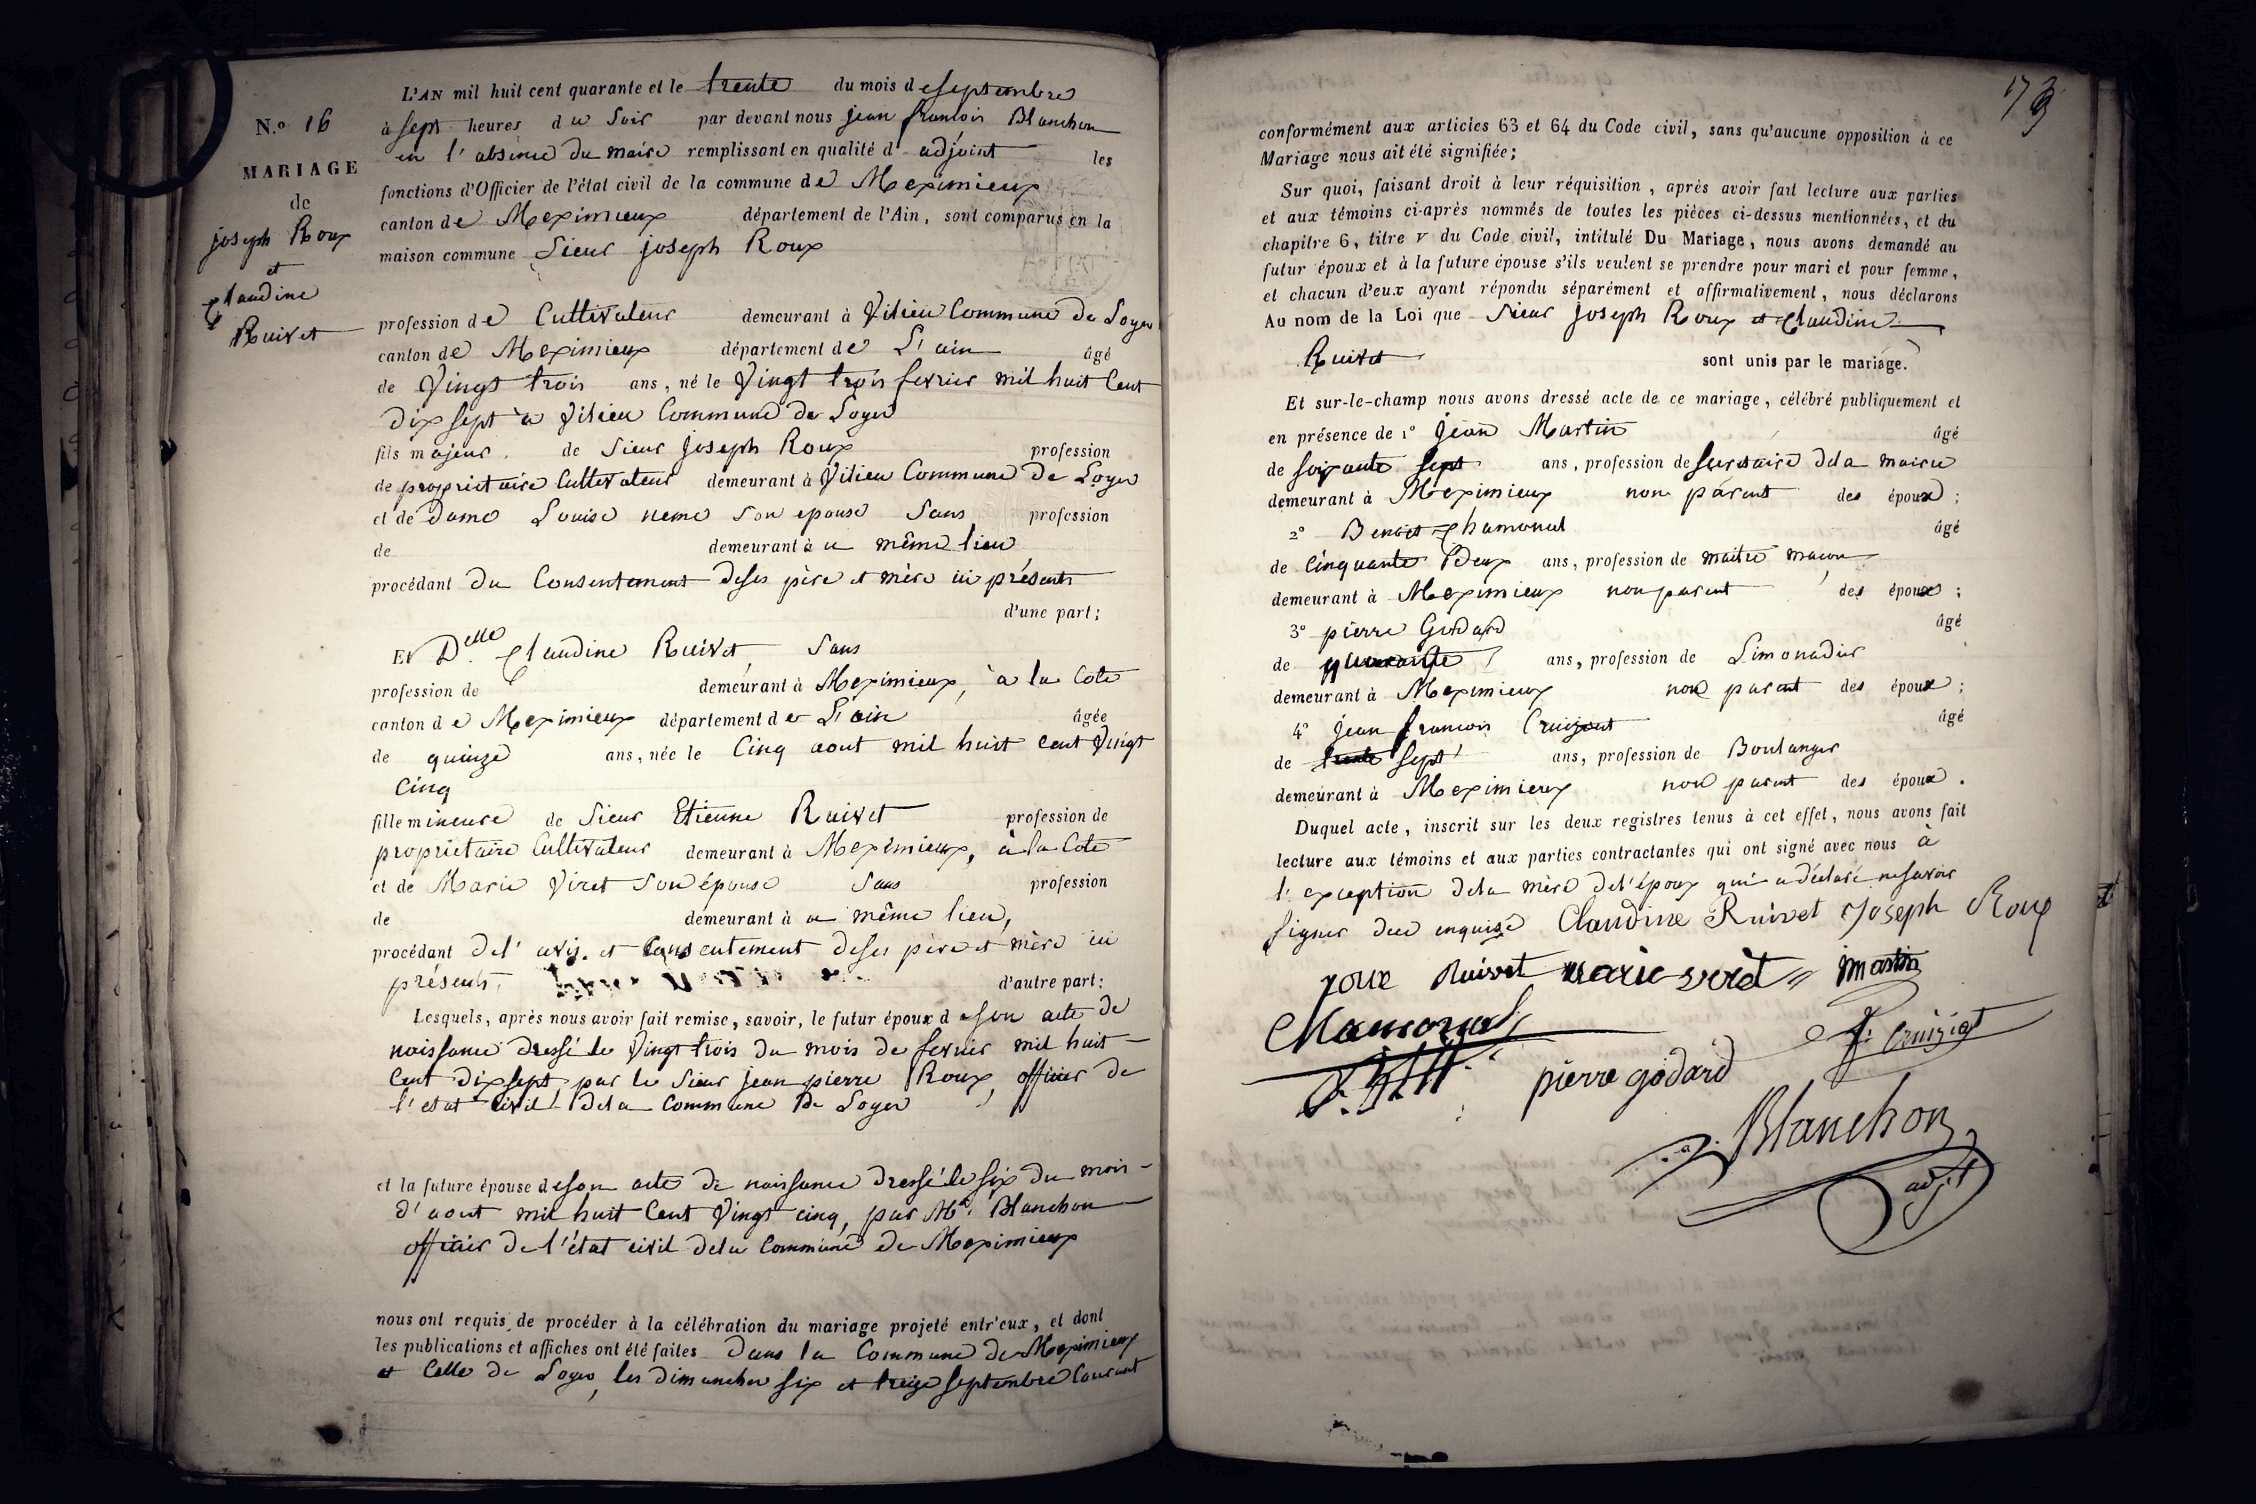 N.º 16
MARIAGE
de
joseph Roux
et
Claudine
Ruivet
L'AN mil huit cent quarante et le trente du mois de septembre
à sept heures du soir par devant nous jean francois Blanchon
en l'absence du maire remplissant en qualité d'adjoint les
fonctions d'Officier de l'état civil de la commune de Meximieux
canton de Meximieux département de l'Ain, sont comparus en la
maison commune Sieur joseph Roux
profession de Cultivateur demeurant à Vilieu Commune de Loyes
canton de Meximieux département de L'ain âgé
de Vingt trois ans, né le Vingt trois fevrier mil huit Cent
dix sept à Vilieu Commune de Loyes
fils majeur de Sieur joseph Roux profession
de proprietaire Cultivateur demeurant à Vilieu Commune de Loyes
et de dame Louise neme son epouse Sans profession
de demeurant à u même lieu
procédant du Consentement deses père et mère ici présents
d'une part;
Et D.elle Claudine Ruivet, Sans
profession de demeurant à Meximieux, à la Cote
canton de Meximieux département de L'ain âgée
de quinze ans, née le Cinq aout mil huit cent Vingt
Cinq
fille mineure de Sieur Etienne Ruivet profession de
proprietaire Cultivateur demeurant à Meximieux, à la Cote
et de Marie Viret son épouse Sans profession
de demeurant à u même lieu,
procédant de l'avis et Consentement deses père et mère ici
présents, d'autre part:
Lesquels, après nous avoir fait remise, savoir, le futur époux de son acte de
naissance dressé le Vingt trois du mois de fevrier mil huit
Cent dix sept par le Sieur jean pierre Roux, officier de
l'etat civil dela Commune de Loyes
et la future épouse deson acte de naissance dressé le six du mois
d'aout mil huit Cent Vingt cinq, par Mr. Blanchon
officier de l'état civil dela Commune de Meximieux
nous ont requis de procéder à la célébration du mariage projeté entr'eux, et dont
les publications et affiches ont été faites dans la Commune de Meximieux
et Celle de Loyes, les dimanches six et treize septembre Courant
173
conformément aux articles 63 et 64 du Code civil, sans qu'aucune opposition à ce
Mariage nous ait été signifiée;
Sur quoi, faisant droit à leur réquisition, après avoir fait lecture aux parties
et aux témoins ci-après nommés de toutes les pièces ci-dessus mentionnées, et du
chapitre 6, titre V du Code civil, intitulé Du Mariage, nous avons demandé au
futur époux et à la future épouse s'ils veulent se prendre pour mari et pour femme,
et chacun d'eux ayant répondu séparément et affirmativement, nous déclarons
Au nom de la Loi que Sieur joseph Roux et Claudine
Ruivet sont unis par le mariage.
Et sur-le-champ nous avons dressé acte de ce mariage, célébré publiquement et
en présence de 1º jean Martin âgé
de soixante sept ans, profession de secretaire dela mairie
demeurant à Meximieux non parent des époux;
2º Benoit Chamonal âgé
de Cinquante deux ans, profession de maitre macon
demeurant à Meximieux non parent des époux;
3º pierre Godard âgé
de quarante ans, profession de Limonadier
demeurant à Meximieux non parent des époux;
4º jean francois Cruiziat âgé
de trente sept ans, profession de Boulanger
demeurant à Meximieux non parent des époux.
Duquel acte, inscrit sur les deux registres tenus à cet effet, nous avons fait
lecture aux témoins et aux parties contractantes qui ont signé avec nous à
l'exception dela mère del'époux qui a déclaré ne savoir
signer duc enquise Claudine Ruivet Joseph Roux
roux Ruivet marie viret martin
Chamonal
f. Cruiziat
pierre godard
Blanchon
adjt